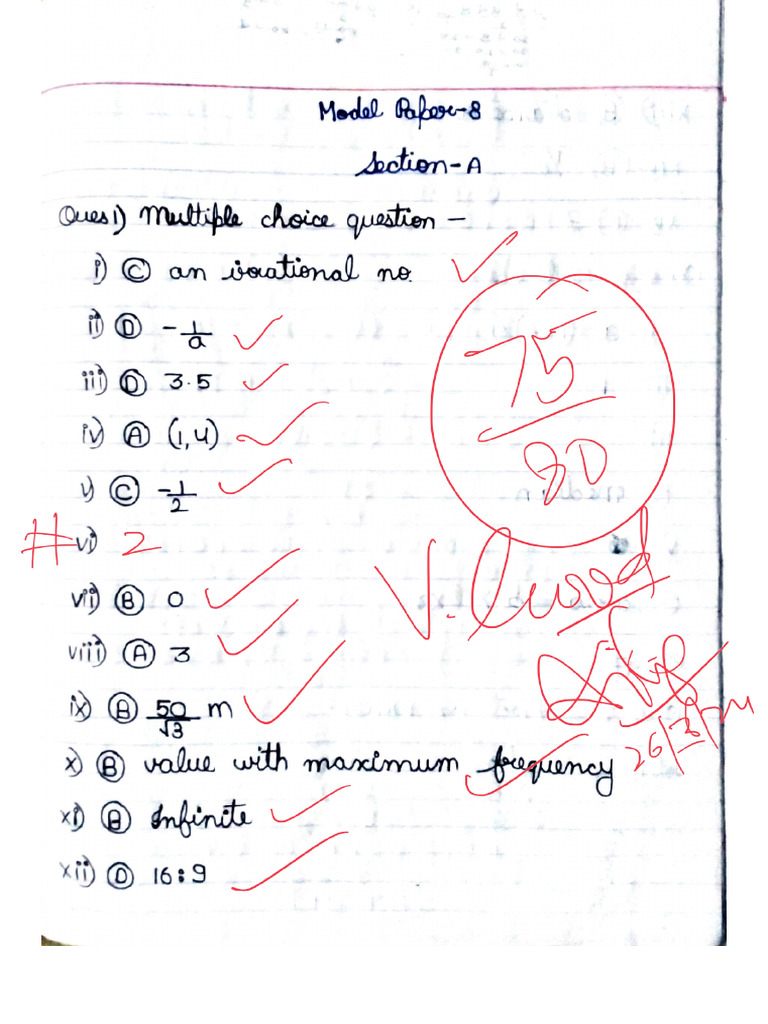 Model Paper-8
Section-A
Ques1) Multiple choice question —
i) Ⓒ an irrational no.
ii) Ⓓ -1/a
iii) Ⓓ 3.5
iv) Ⓐ (1,4)
v) Ⓒ -1/2
# vi) 2
vii) Ⓑ 0
viii) Ⓐ 3
ix) Ⓑ 50/√3 m
x) Ⓑ value with maximum frequency
xi) Ⓑ Infinite
xii) Ⓓ 16:9
75/80
V. Good